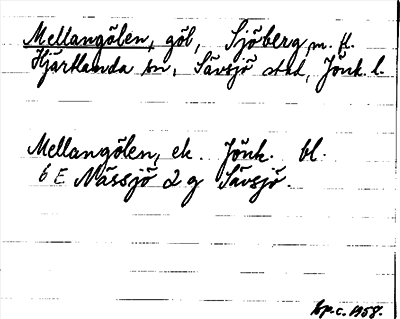 Mellangölen, göl, Sjöberg m. fl.
Hjärtlanda sn, Sävsjö stad, Jönk. l.
Mellangölen, ek. Jönk. bl.
6 E Nässjö 2 g Sävsjö.
1958.